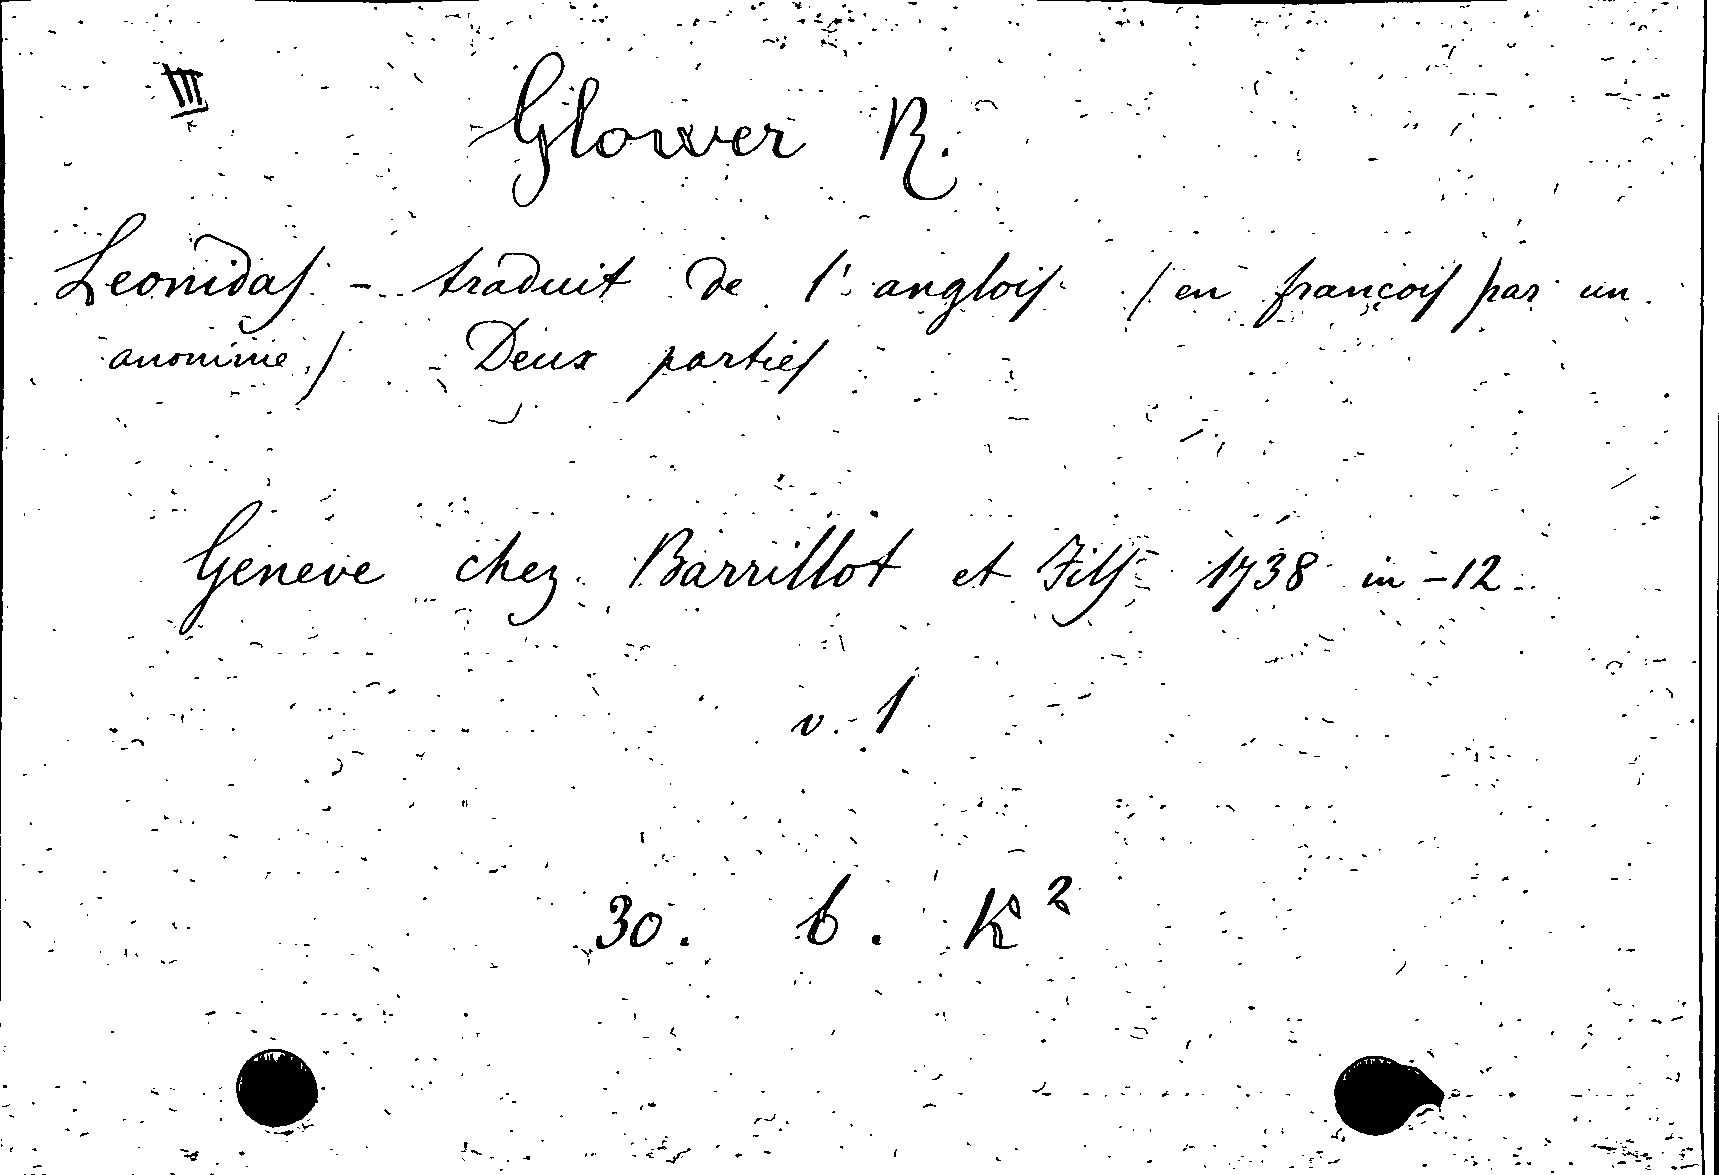 III
Glower R.
Leonidas - traduit de l'anglois / en françois par un
anonime / Deux parties
Geneve chez Barrillot et Fils 1738 in-12
v. 1
30. b. K²